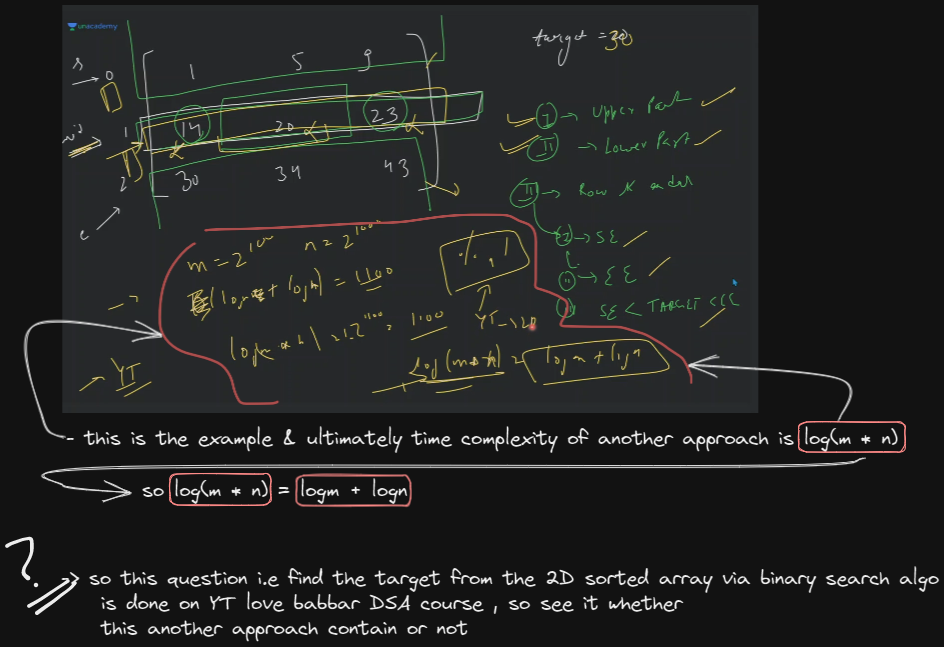 unacademy
target = 30
s → 0
1 5 9
I → Upper Part
1
14 20 23
II → Lower Part
2
30 34 43
III → Row
e
I → SE
m = 2^1000 n = 2^100
II → EE
(logm + logn) = 1100
SE < TARGET <
1100
YT →
YT
log(m * n) = logm + logn
- this is the example & ultimately time complexity of another approach is log(m * n)
so log(m * n) = logm + logn
?
so this question i.e find the target from the 2D sorted array via binary search algo
is done on YT love babbar DSA course , so see it whether
this another approach contain or not